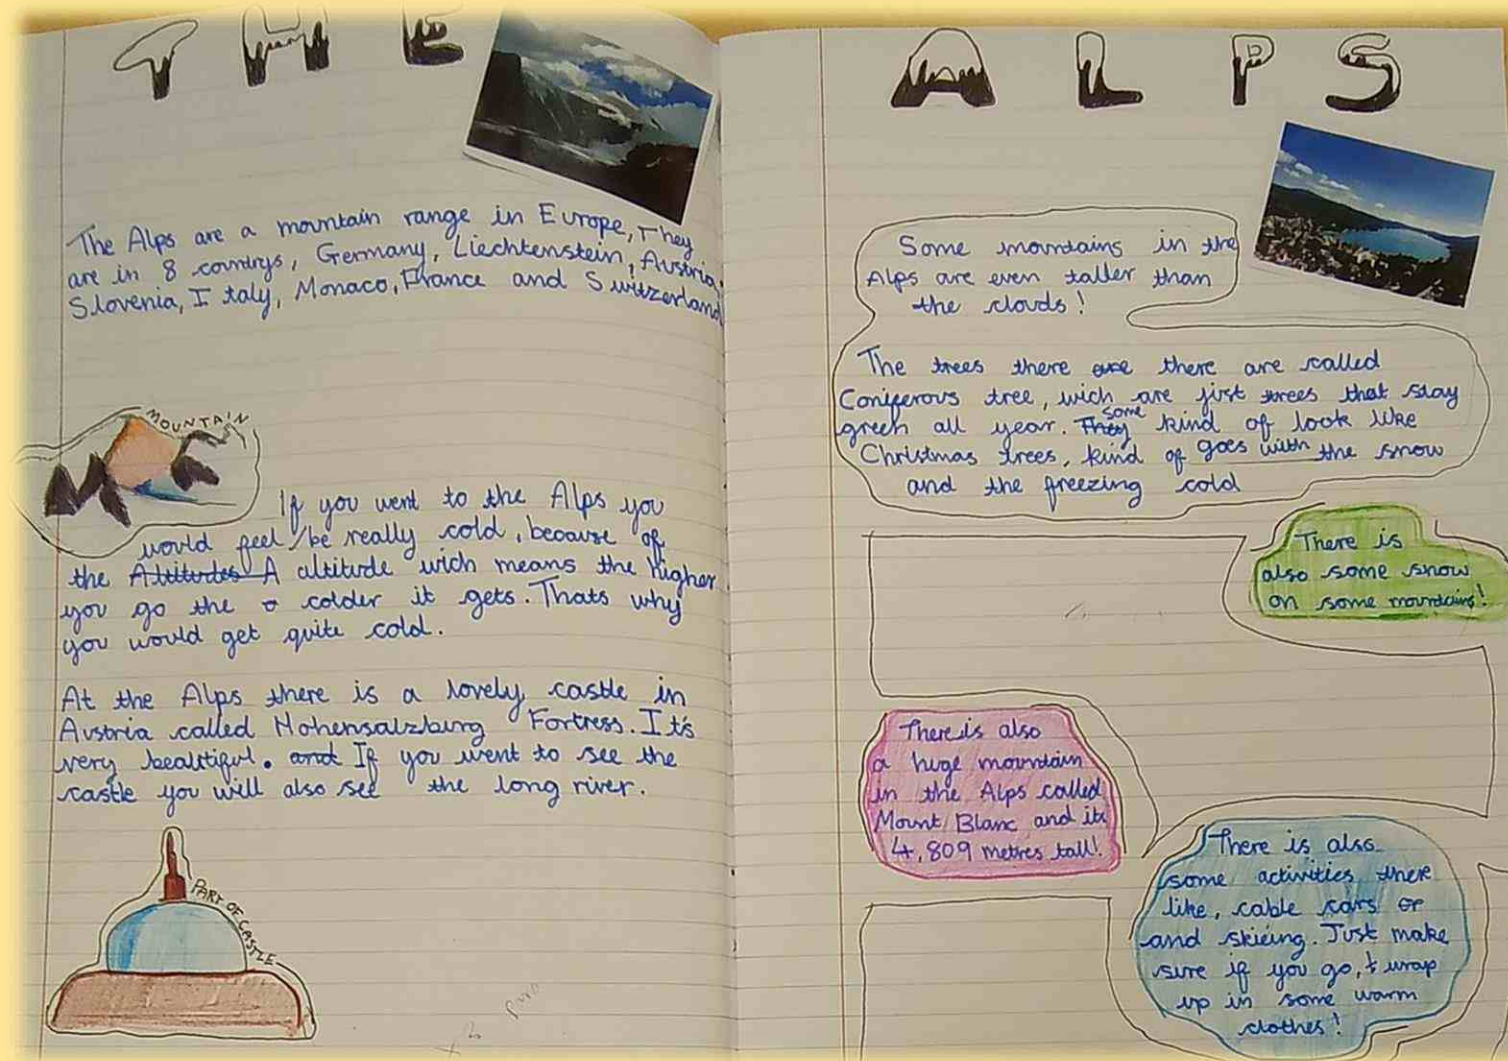 THE ALPS
The Alps are a mountain range in Europe, They
are in 8 countrys, Germany, Liechtenstein, Austria,
Slovenia, Italy, Monaco, France and Switzerland
MOUNTAIN
If you went to the Alps you
would feel/be really cold, because of
the Altitudes A altitude wich means the higher
you go the colder it gets. Thats why
you would get quite cold.
At the Alps there is a lovely castle in
Austria called Hohensalzburg Fortress. It's
very beautiful. and If you went to see the
castle you will also see the long river.
PART OF CASTLE
Some mountains in the
Alps are even taller than
the clouds!
The trees there are there are called
Coniferous tree, wich are jist trees that stay
green all year. They some kind of look like
Christmas trees, kind of goes with the snow
and the freezing cold
There is
also some snow
on some mountains!
There is also
a huge mountain
in the Alps called
Mount Blanc and its
4,809 metres tall!
There is also
some activities there
like, cable cars or
and skieing. Just make
sure if you go, t wrap
up in some warm
clothes!